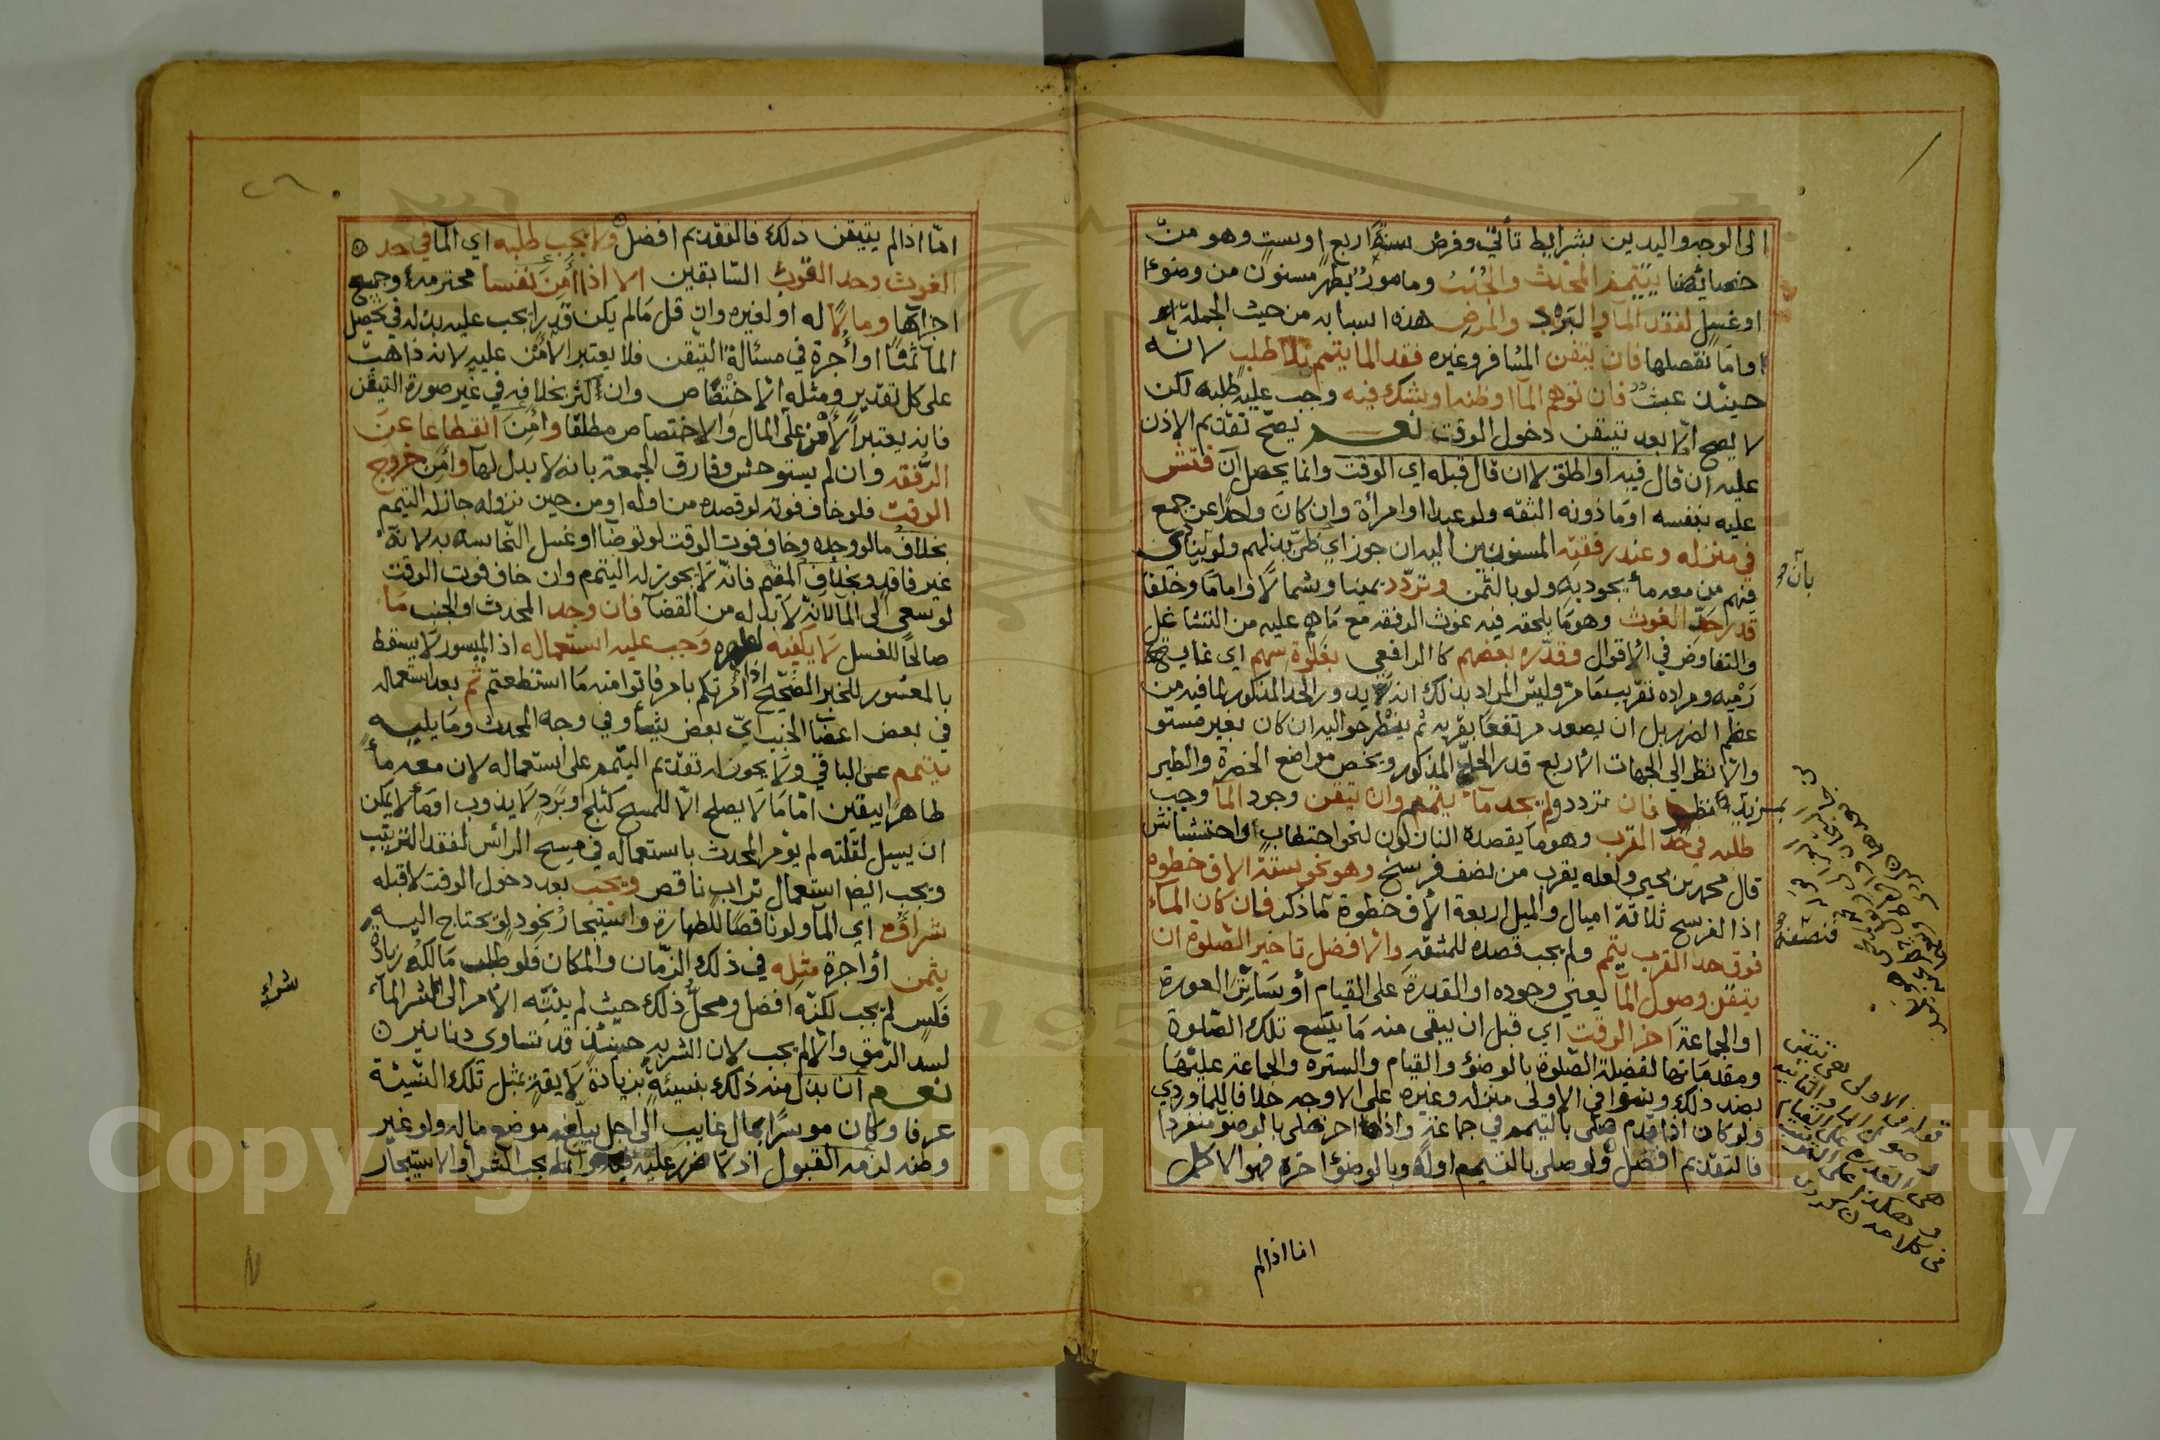 الى الوجه واليدين بشرايط تأتي وفرض سنة اربع او ست وهو من
خصايصنا يتيمم المحدث والجنب ومامور بطهر مسنون من وضوء
او غسل لفقد الماء والبرد والمرض هذه اسبابه من حيث الجملة
واما تفصلها فان تيقن المسافر وغيره فقد الما يتيمم بلا طلب لانه
حينئذ عبث فان توهم الما اوظنه اوشك فيه وجب عليه طلبه لكن
لا يصح الا بعد تيقن دخول الوقت نعم يصح تقديم الاذن
عليه ان قال فيه او اطلق لا ان قال قبله اي الوقت وانما يحصل ان فتش
عليه بنفسه او ماذونه الثقه ولو عبدا او امراة وان كان واحدا عن جمع
في منزله وعند رفقته المسنوبين اليه ان جوز اي ظن بذلهم ولو بينادي
فيهم من معه ماء يجود به ولو بالثمن وتردد يمينا وشمالا واماما وخلفا
قدر حد الغوث وهو ما يلحقه فيه غوث الرفقه مع ما هم عليه من التشاغل
والتفاوض في الاقوال وقدره بعضهم كالرافعي بغلوة سهم اي غاية
رميه ومراده تقريب ما مر وليس المراد بذلك انه يدور الحد المذكور لما فيه من
عظم الضرر بل ان يصعد مرتفعا بقربه ثم ينظر حواليه ان كان بغير مستو
والا نظر الى الجهات الاربع قدر الحد المذكور ويخص مواضع الخضرة والطير
بمزيد نظر فان تردد ولم يجد ماء يتيمم وان تيقن وجود الما وجب
طلبه في حد القرب وهو ما يقصده النازلون لنحو احتطاب او احتشاش
قال محمد بن يحيى ولعله يقرب من نصف فرسخ وهو نحو ستة الاف خطوه
اذ الفرسخ ثلاثة اميال والميل اربعة الاف خطوة كما ذكر فان كان الماء
فوق حد القرب يتيمم ولم يجب قصده للمشقه والافضل تاخير الصلوة ان
يتيقن وصول الما يعني وجوده او القدرة على القيام أو ساتر العورة
او الجماعة اخر الوقت اي قبل ان يبقى منه ما يسع تلك الصلوة
ومقدماتها لفضيلة الصلوة بالوضوء والقيام والستره والجماعة عليها
بضد ذلك وسوا في الاولى منزله وغيره على الاوجه خلافا للماوردي
ولو كان اذا قدم صلى بالتيمم في جماعة واذا اخر صلى بالوضو منفردا
فالتقديم افضل ولو صلى بالتيمم اوله وبالوضوء اخره فهو الاكمل
بان
فنصفه
اما اذا لم
اما اذا لم يتيقن ذلك فالتقديم افضل ولا يجب طلبه اي الما في حد
الغوث وحد القرب السابقين الا اذا أمن نفسا محترمة وجميع
اجزائها ومالا له او لغيره وان قل ما لم يكن قدرا يجب عليه بذله في تحصيل
الما ثمنا او أجرة في مسئالة التيقن فلا يعتبر الأمن عليه لانه ذاهب
على كل تقدير ومثله الاختصاص وان كثر بخلافه في غير صورة التيقن
فانه يعتبر الأمن على المال والاختصاص مطلقا وأمن انقطاعا عن
الرفقه وان لم يستوحش وفارق الجمعة بانه لا بدل لها وامن خروج
الوقت فلو خاف فوته لو قصده من اوله او من حين نزوله جاز له التيمم
بخلاف ما لو وجده وخاف فوت الوقت لو توضا او غسل النجاسه به لانه
غير فاقد وبخلاف المقيم فانه لا يجوز له التيمم وان خاف فوت الوقت
لو سعى الى الما لانه لا بد له من القضا فان وجد المحدث او الجنب ما
صالحا للغسل لا يكفيه لطهره وجب عليه استعماله اذ الميسور لا يسقط
بالمعسور للخبر الصحيح اذا امرتكم بامر فاتوا منه ما استطعتم ثم بعد استعماله
في بعض اعضا الجنب اي بعض شا وفي وجه المحدث وما يليه
يتيمم عن الباقي ولا يجوز له تقديم التيمم على استعماله لان معه ماء
طاهرا بيقين اما ما لا يصلح الا للمسح كثلج او برد لا يذوب اوما لا يمكن
ان يسيل لقلته لم يؤمر المحدث باستعماله في مسح الرأس لفقد الترتيب
ويجب ايضا استعمال تراب ناقص ويجب بعد دخول الوقت لا قبله
شراؤه اي الما ولو ناقصا للطهارة واستيجار نحو دلو يحتاج اليه
بثمن أو اجرة مثله في ذلك الزمان والمكان فلو طلب مالكه زيادة
فلس لم يجب لكنه افضل ومحل ذلك حيث لم ينته الأمر الى شر الماء
لسد الرمق والا لم يجب لان الشربه حينئذ قد تساوي دنانير
نعم ان بذل منه ذلك بنسيئة بزيادة لايقة بمثل تلك النسيئة
عرفا وكان موسرا بمال غايب الى اجل يبلغه موضع ماله ولو غير
وطنه لزمه القبول اذ لا ضرر عليه وانما يجب الشرأ والاستيجار
شراء